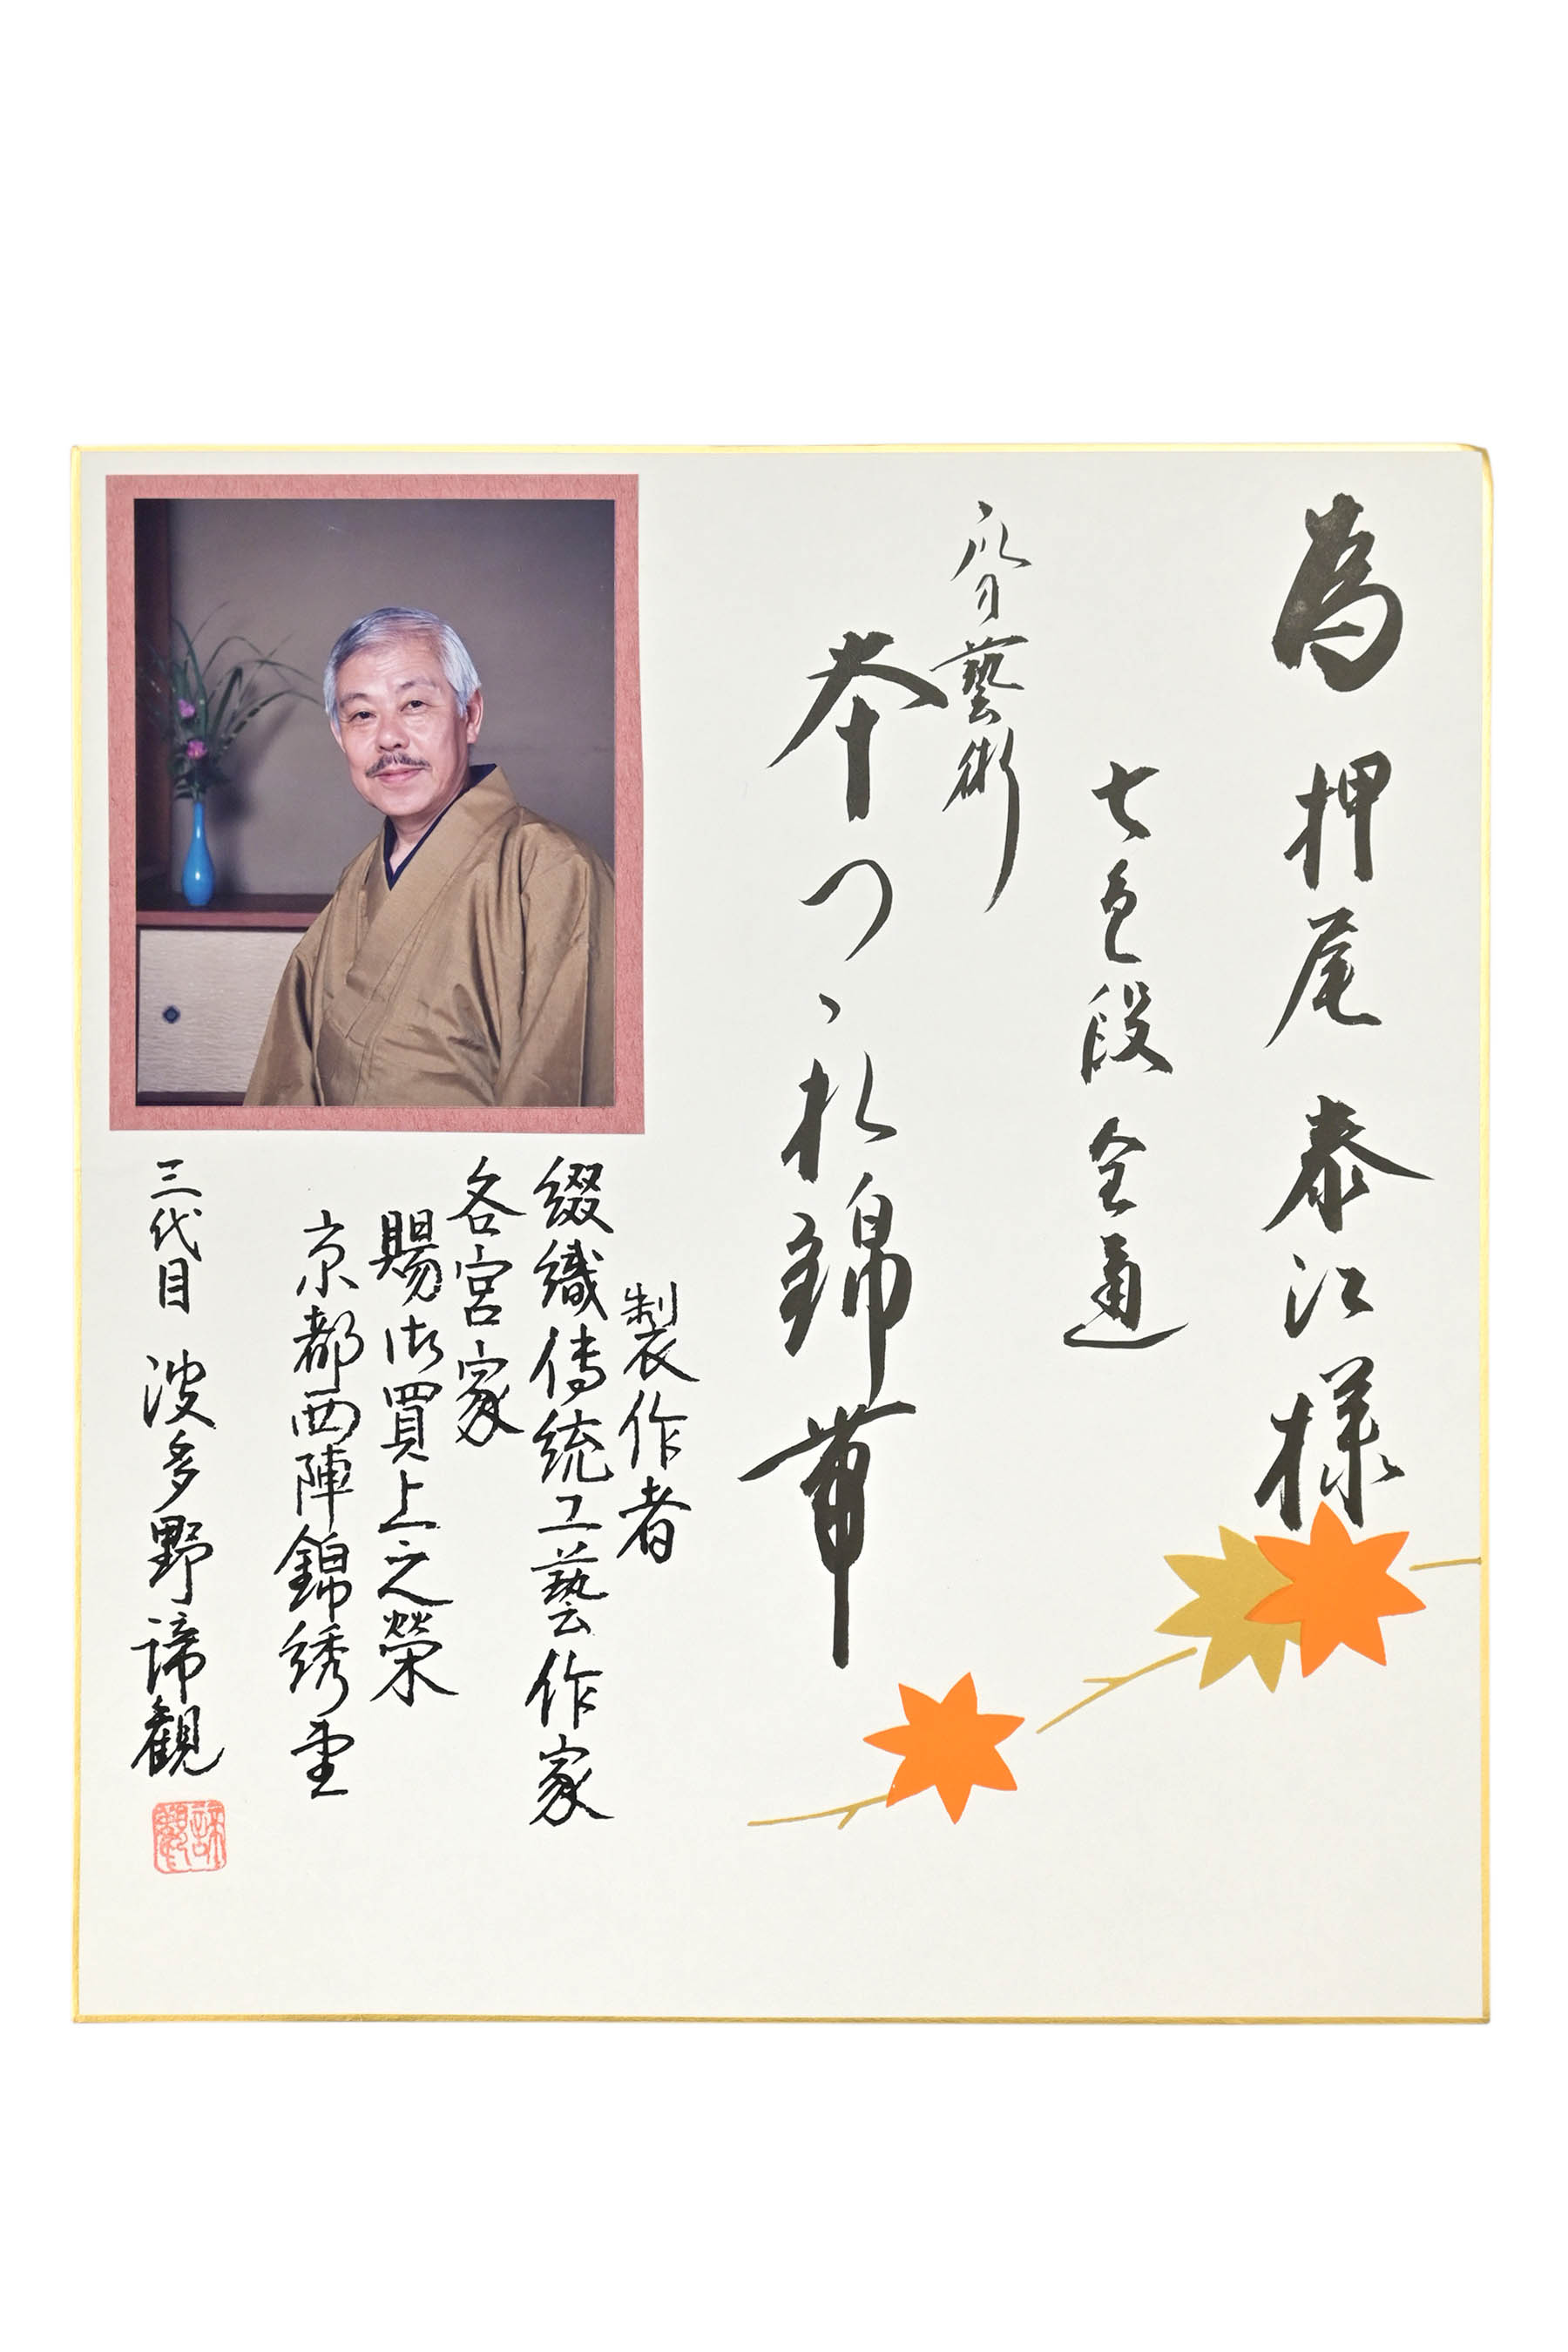 為 押尾泰江様
七色段 全通
爪掻藝術
本つゝれ錦帯
製作者
綴織傳統工藝作家
各宮家
賜御買上之榮
京都西陣錦綉堂
三代目 波多野諦観
諦観